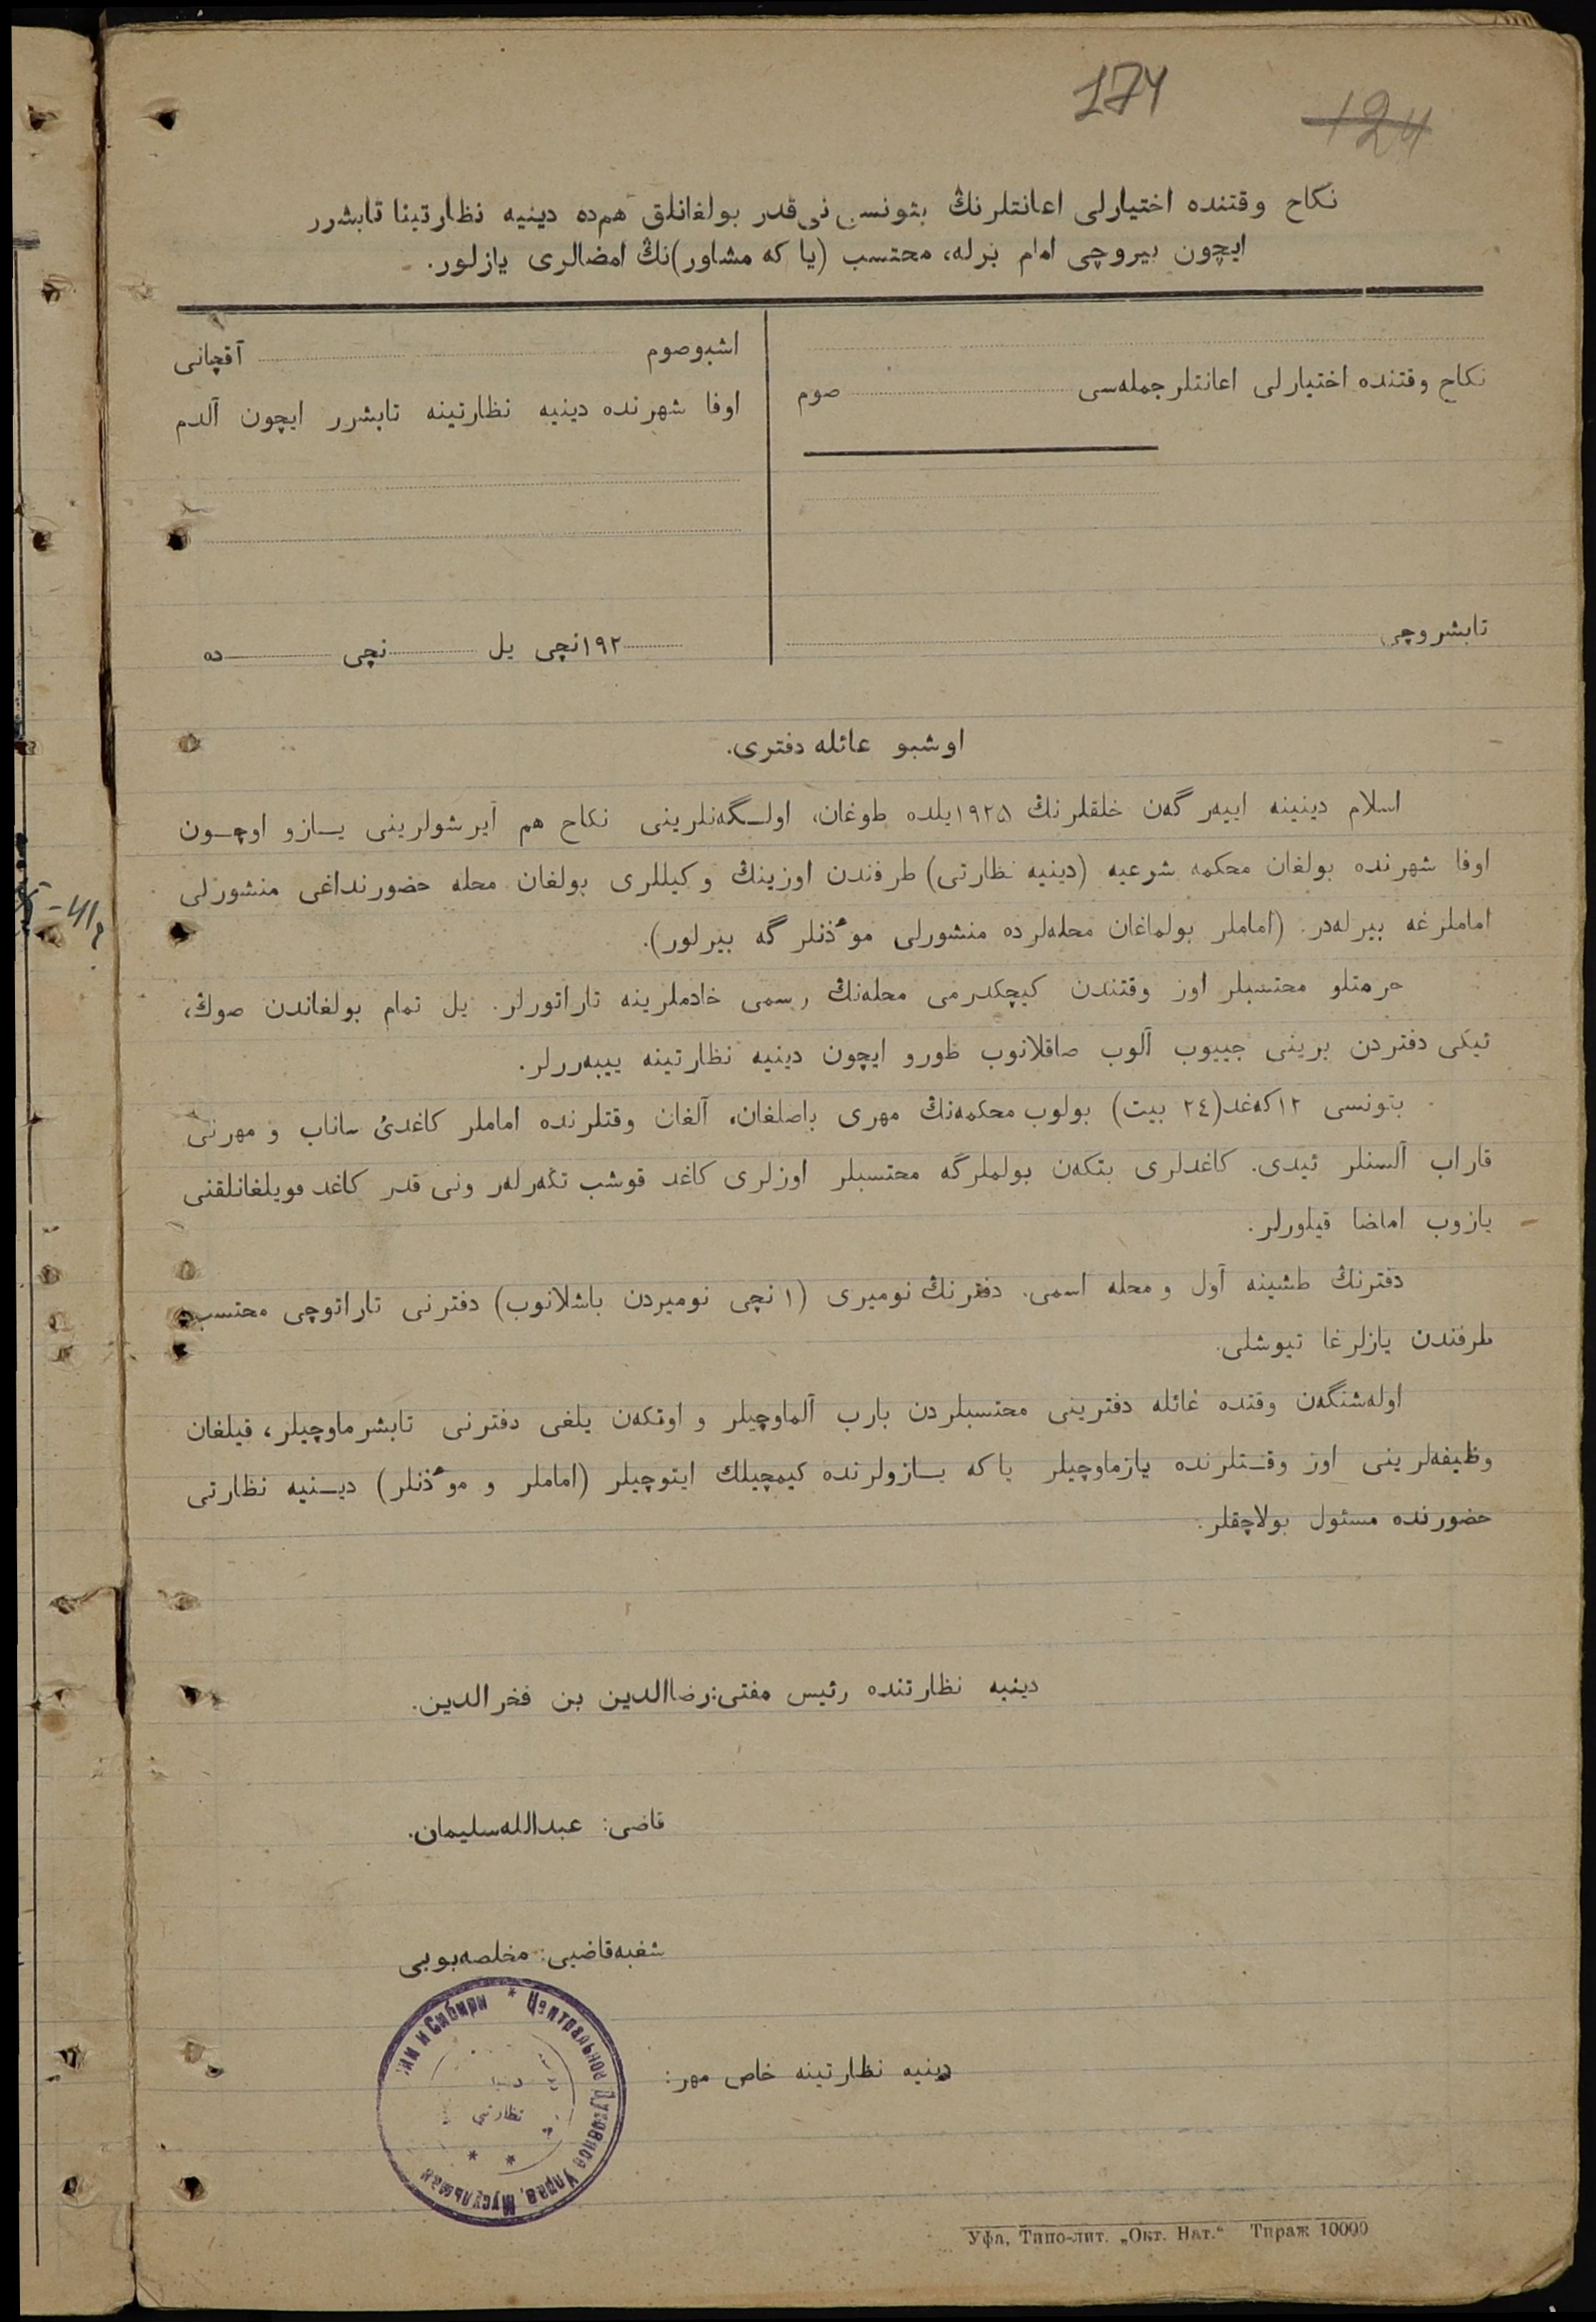 174
124
نكاح وقتنده اختيارلی اعانتلرنڭ بتونسی نی قدر بولغانلق هم‌ده دينيه نظارتينا تابشرر
ايچون بيروچی امام برله، محتسب (يا كه مشاور)نڭ امضالری يازلور.
نكاح وقتنده اختيارلی اعانتلر جمله‌سی صوم
تابشروچی
اشبو صوم آقچانی
اوفا شهرنده دينيه نظارتينه تابشرر ايچون آلدم
۱۹۲ نچی يل نچی ده
اوشبو عائله دفتری.
اسلام دينينه اييەر گەن خلقلرنڭ ۱۹۲۵ يلده طوغان، اولـگەنلرينی نكاح هم آيرشولرينی يـازو اوچـون
اوفا شهرنده بولغان محكمه شرعيه (دينيه نظارتی) طرفندن اوزينڭ وكيللری بولغان محله حضورنداغی منشورلی
اماملرغه بيرله‌در. (اماملر بولماغان محله‌لرده منشورلی موٴذنلر گه بيرلور).
حرمتلو محتسبلر اوز وقتندن كيچكدرمی محله‌نڭ رسمی خادملرينه تاراتورلر. يل تمام بولغاندن صوڭ،
ئيكی دفتردن برينی جييوب آلوب صاقلانوب طورو ايچون دينيه نظارتينه ييبەررلر.
بتونسی ۱۲ كەغد (۲٤ بيت) بولوب محكمه‌نڭ مهری باصلغان، آلغان وقتلرنده اماملر كاغدئ ساناب و مهرنی
قاراب آلسنلر ئيدی. كاغدلری بتكەن بولملرگه محتسبلر اوزلری كاغد قوشب تكەرلەر ونی قدر كاغد قويلغانلقنی
يازوب اماضا قيلورلر.
دفترنڭ طشينه آول و محله اسمی. دفترنڭ نوميری (۱ نچی نوميردن باشلانوب) دفترنی تاراتوچی محتسب
طرفندن يازلرغا تيوشلی.
اولەشنگەن وقتده عائله دفترينی محتسبلردن بارب آلماوچيلر و اوتكەن يلغی دفترنی تابشرماوچيلر، قيلغان
وظيفه‌لرينی اوز وقـتلرنده يازماوچيلر ياكه يـازولرنده كيمچيلك ايتوچيلر (اماملر و موٴذنلر) ديـنيه نظارتی
حضورنده مسئول بولاچقلر.
دينيه نظارتنده رئيس مفتی: رضاالدين بن فخرالدين.
قاضی: عبدالله سليمان.
شغبه قاضيی: مخلصه بوبی
دينيه نظارتينه خاص مهر:
* Центральное Духовное Управ. Мусульман
и Сибири
نظارتی
Уфа, Типо-лит. „Окт. Нат.“ Тираж 10000